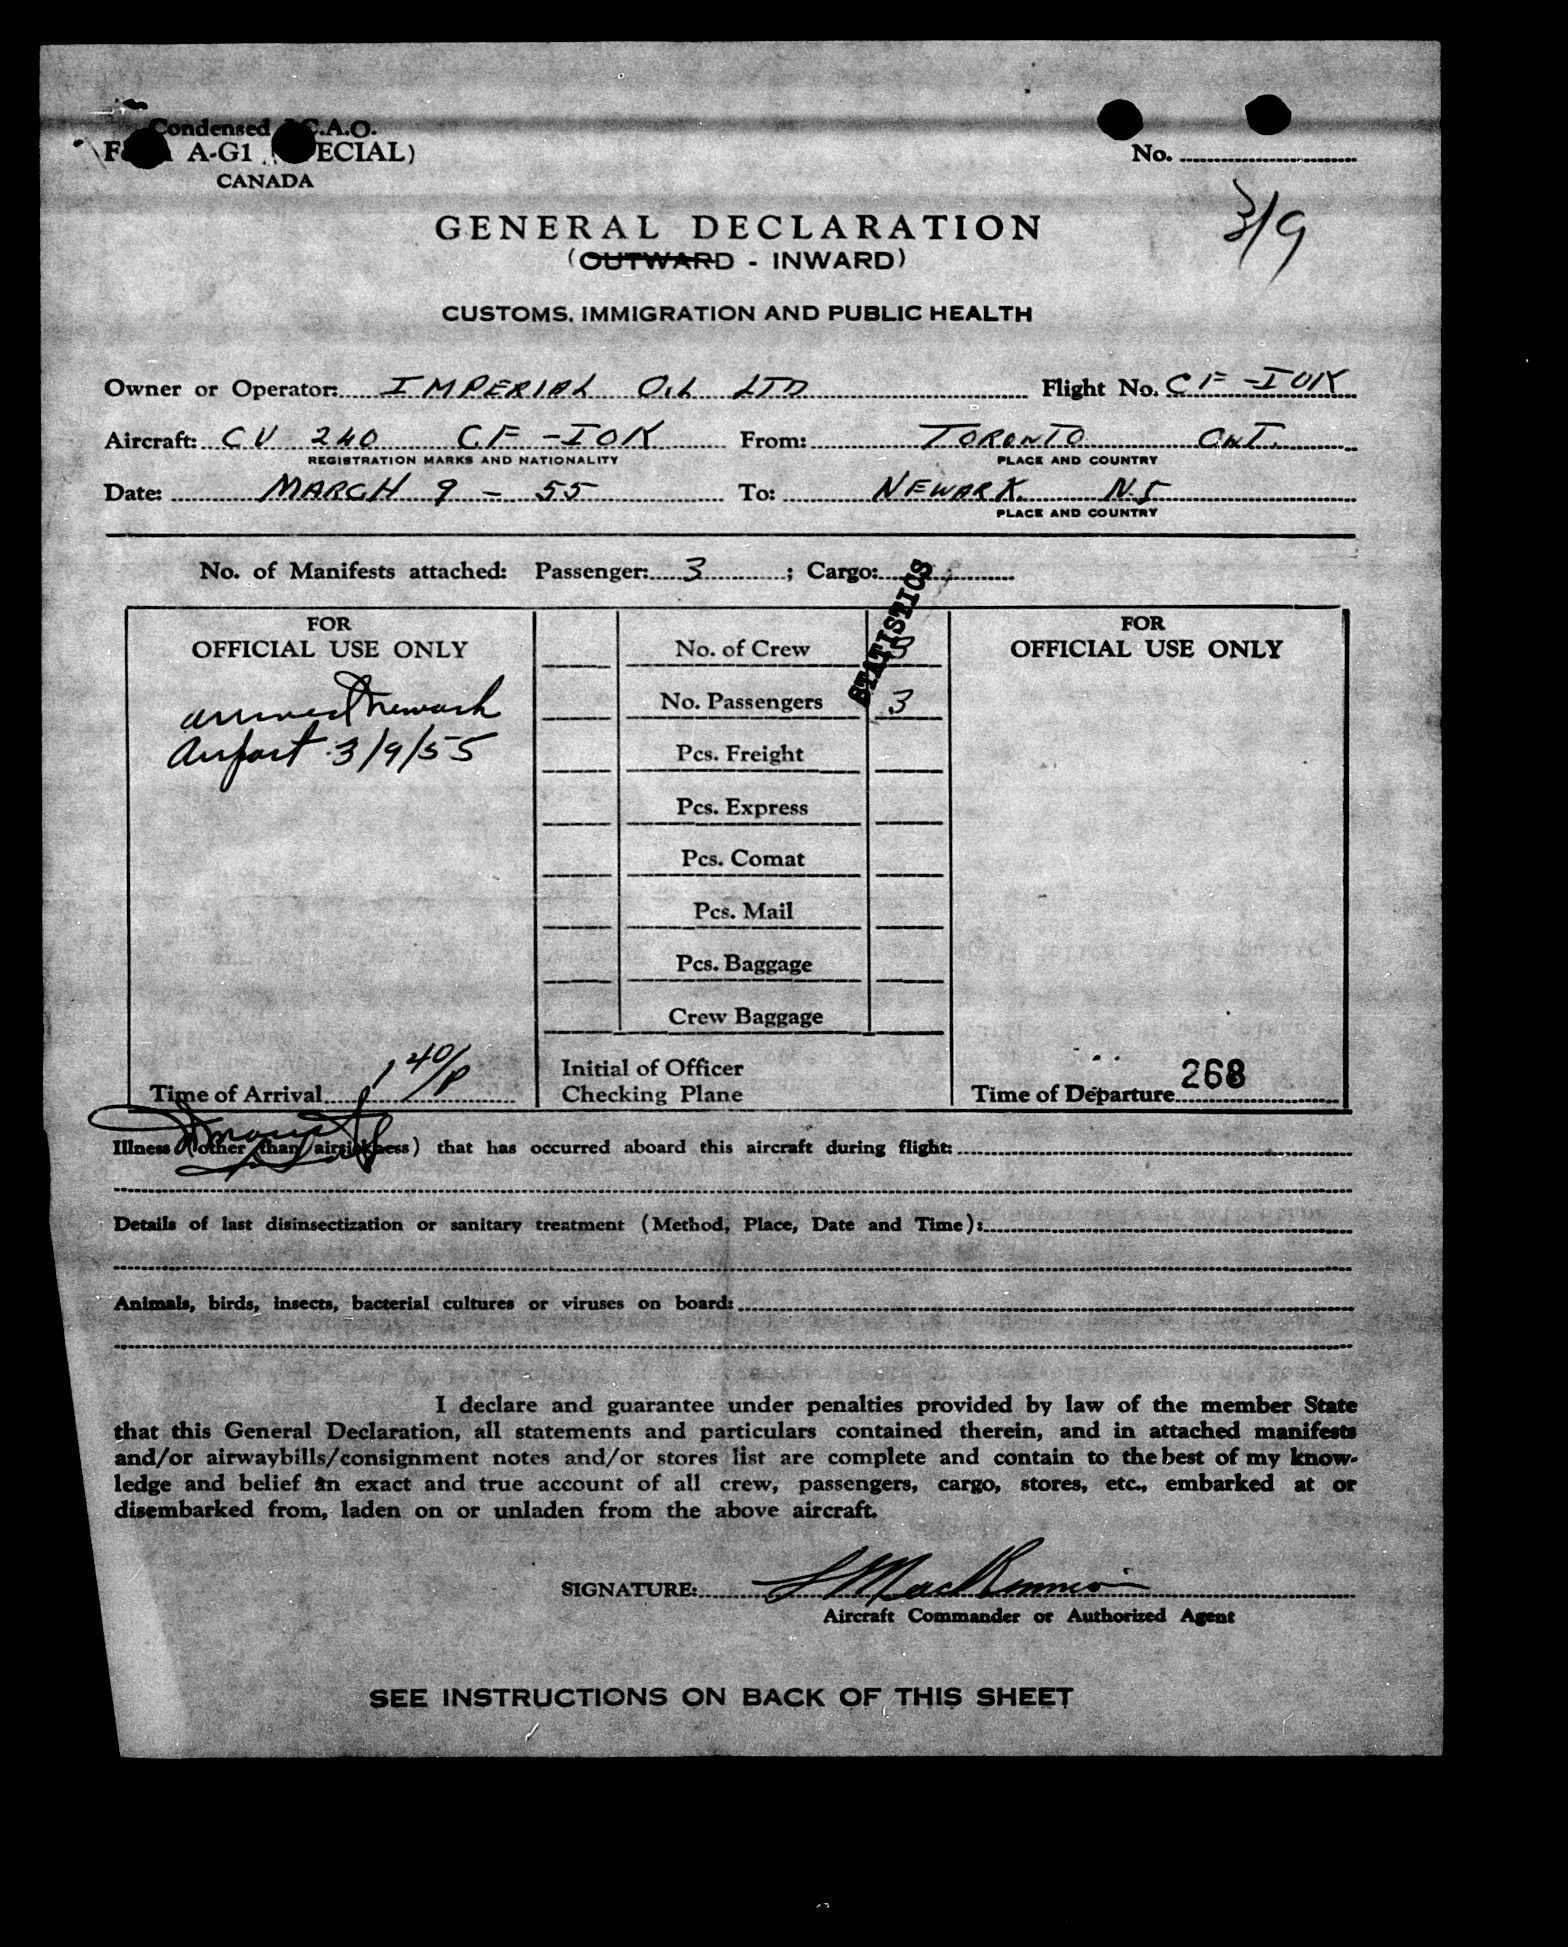 Condensed C.A.O.
A-G1 ECIAL)
CANADA
No.
3/9
GENERAL DECLARATION
(OUTWARD - INWARD)
CUSTOMS, IMMIGRATION AND PUBLIC HEALTH
Owner or Operator: IMPERIAL OIL LTD Flight No. CF-IOK
Aircraft: CV 240 CF-IOK From: TORONTO ONT.
REGISTRATION MARKS AND NATIONALITY PLACE AND COUNTRY
Date: MARCH 9 - 55 To: NEWARK NJ
PLACE AND COUNTRY
No. of Manifests attached: Passenger: 3 ; Cargo:
STATISTICS
FOR FOR
OFFICIAL USE ONLY No. of Crew 3 OFFICIAL USE ONLY
arrived Newark No. Passengers 3
Airport 3/9/55 Pcs. Freight
Pcs. Express
Pcs. Comat
Pcs. Mail
Pcs. Baggage
Crew Baggage
Initial of Officer
Time of Arrival 1 40/P Checking Plane Time of Departure 268
Illness (other than airsickness) that has occurred aboard this aircraft during flight:
Details of last disinsectization or sanitary treatment (Method, Place, Date and Time):
Animals, birds, insects, bacterial cultures or viruses on board:
I declare and guarantee under penalties provided by law of the member State
that this General Declaration, all statements and particulars contained therein, and in attached manifests
and/or airwaybills/consignment notes and/or stores list are complete and contain to the best of my know-
ledge and belief an exact and true account of all crew, passengers, cargo, stores, etc., embarked at or
disembarked from, laden on or unladen from the above aircraft.
SIGNATURE: MacKinnon
Aircraft Commander or Authorized Agent
SEE INSTRUCTIONS ON BACK OF THIS SHEET